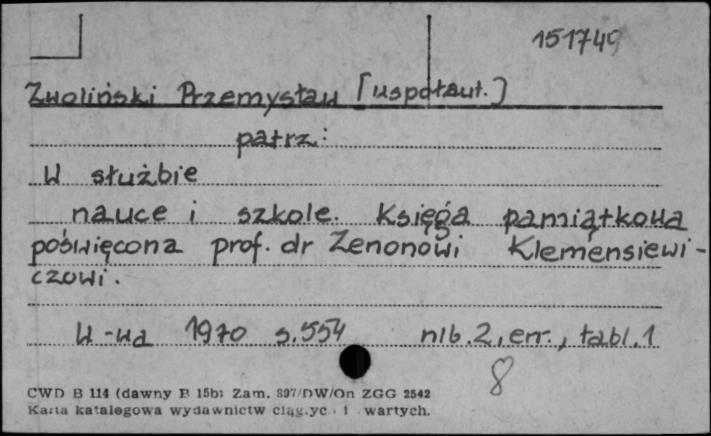 151749
Zwoliński Przemysław [współaut.]
patrz:
W służbie
nauce i szkole. Księga pamiątkowa
poświęcona prof. dr Zenonowi Klemensiewi-
czowi.
W-wa 1970 s.554 nlb.2, err., tabl.1
8
CWD B 114 (dawny B 15b) Zam. 897/DW/On ZGG 2542
Karta katalogowa wydawnictw i wartych.